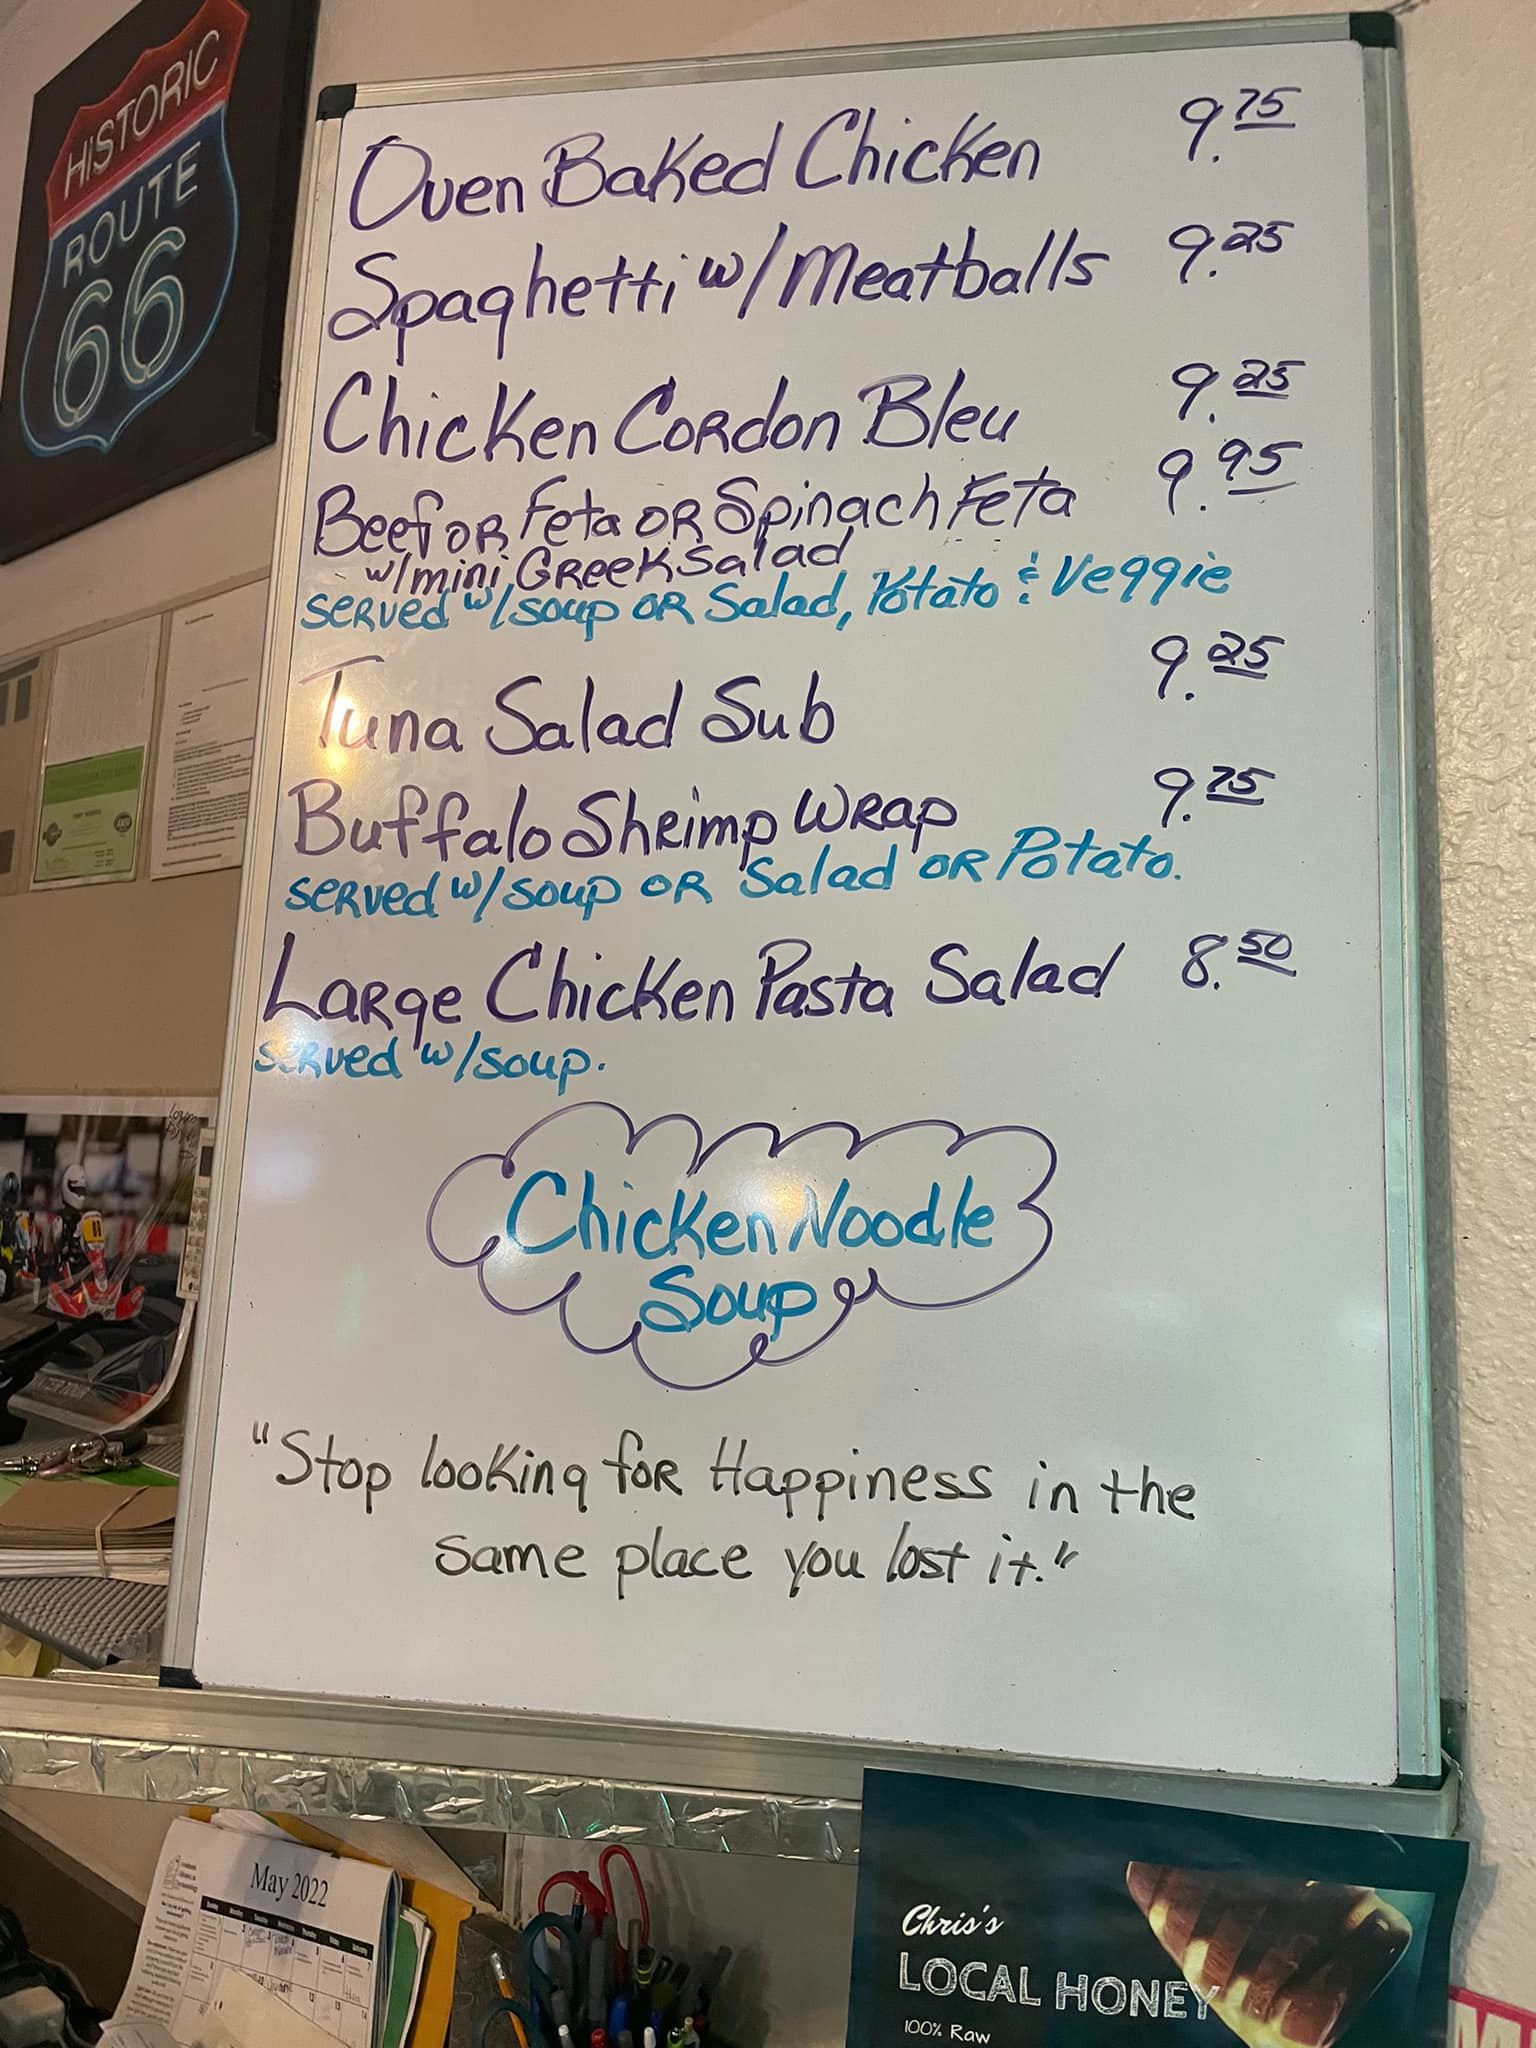 HISTORIC
ROUTE
66
Oven Baked Chicken 9.75
Spaghetti w/Meatballs 9.25
Chicken Cordon Bleu 9.25
Beef or Feta or Spinach Feta 9.95
w/mini Greek Salad
served w/soup or Salad, Potato & Veggie
Tuna Salad Sub 9.25
Buffalo Shrimp Wrap 9.75
served w/soup or Salad or Potato.
Large Chicken Pasta Salad 8.50
served w/soup.
Chicken Noodle
Soup
"Stop looking for Happiness in the
same place you lost it."
May 2022
Chris's
LOCAL HONEY
100% Raw